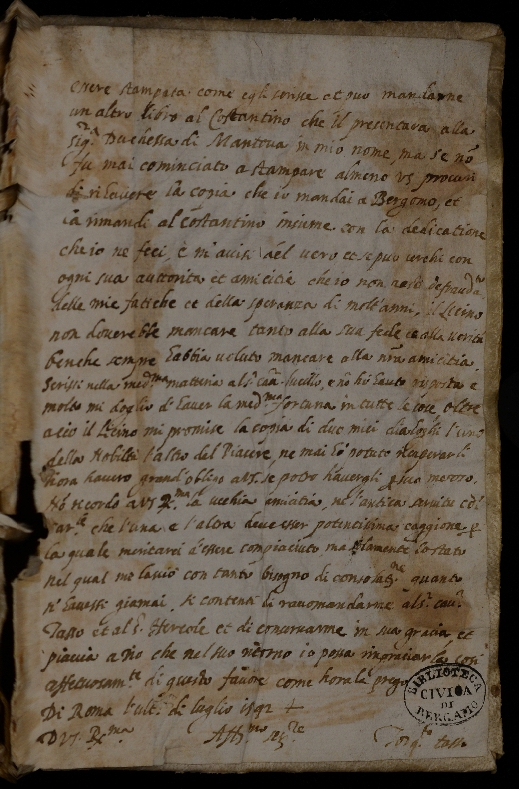 essere stampata come egli scrisse et può mandarne
un altro libro al Costantino che il presentava alla
Sig.ra Duchessa di Mantova in mio nome, ma se nō
fu mai cominciato a stampare almeno VS procuri
di rihavere la copia che io mandai a Bergomo, et
la rimandi al Costantino insieme con la dedicatione
che io ne feci, e m'avisi del vero et se può
ogni sua auttorità et amicitia che io non sarò
delle mie fatiche et della speranza di molt'anni. il Licino
non doverebbe mancare tanto alla sua fede et alla verità
benche sempre habbia voluto mancare alla nr̄a amicitia
Scrissi nella med.ma matteria al S.r Cav. lucillo, e nō hò hauto risposta e
molto mi doglio d'haver la med.ma fortuna in tutte le cose oltre
a ciò il Licino mi promise la copia di due miei dialoghi l'uno
della Nobiltà l'altro del Piacere, ne mai hò potuto ricuperarli
hora haverò grand'obligo a VS. se potrò havergli suo mezzo.
Nō ricordo a VS R.ma la vecchia amicitia, ne l'antica servitù
che l'una e l'altra deve esser potentissima caggione
la quale meritarei d'essere compiaciuto ma solamente lo stato
nel qual me lasciò con tanto bisogno di consolat.ne quanto
n'havessi giamai, si contenti di racomandarme al S. cav.r
Tasso et al S. Hercole et di conservarme in sua gracia et
piaccia a Dio che nel suo ritorno io possa ringraciarla così
affettuosam.te di questo favore come hora la prego
Di Roma l'ult.o di luglio 1592
D VS. R.ma Aff.mo ser.re Torq.to tasso
BIBLIOTECA
CIVICA
DI
BERGAMO